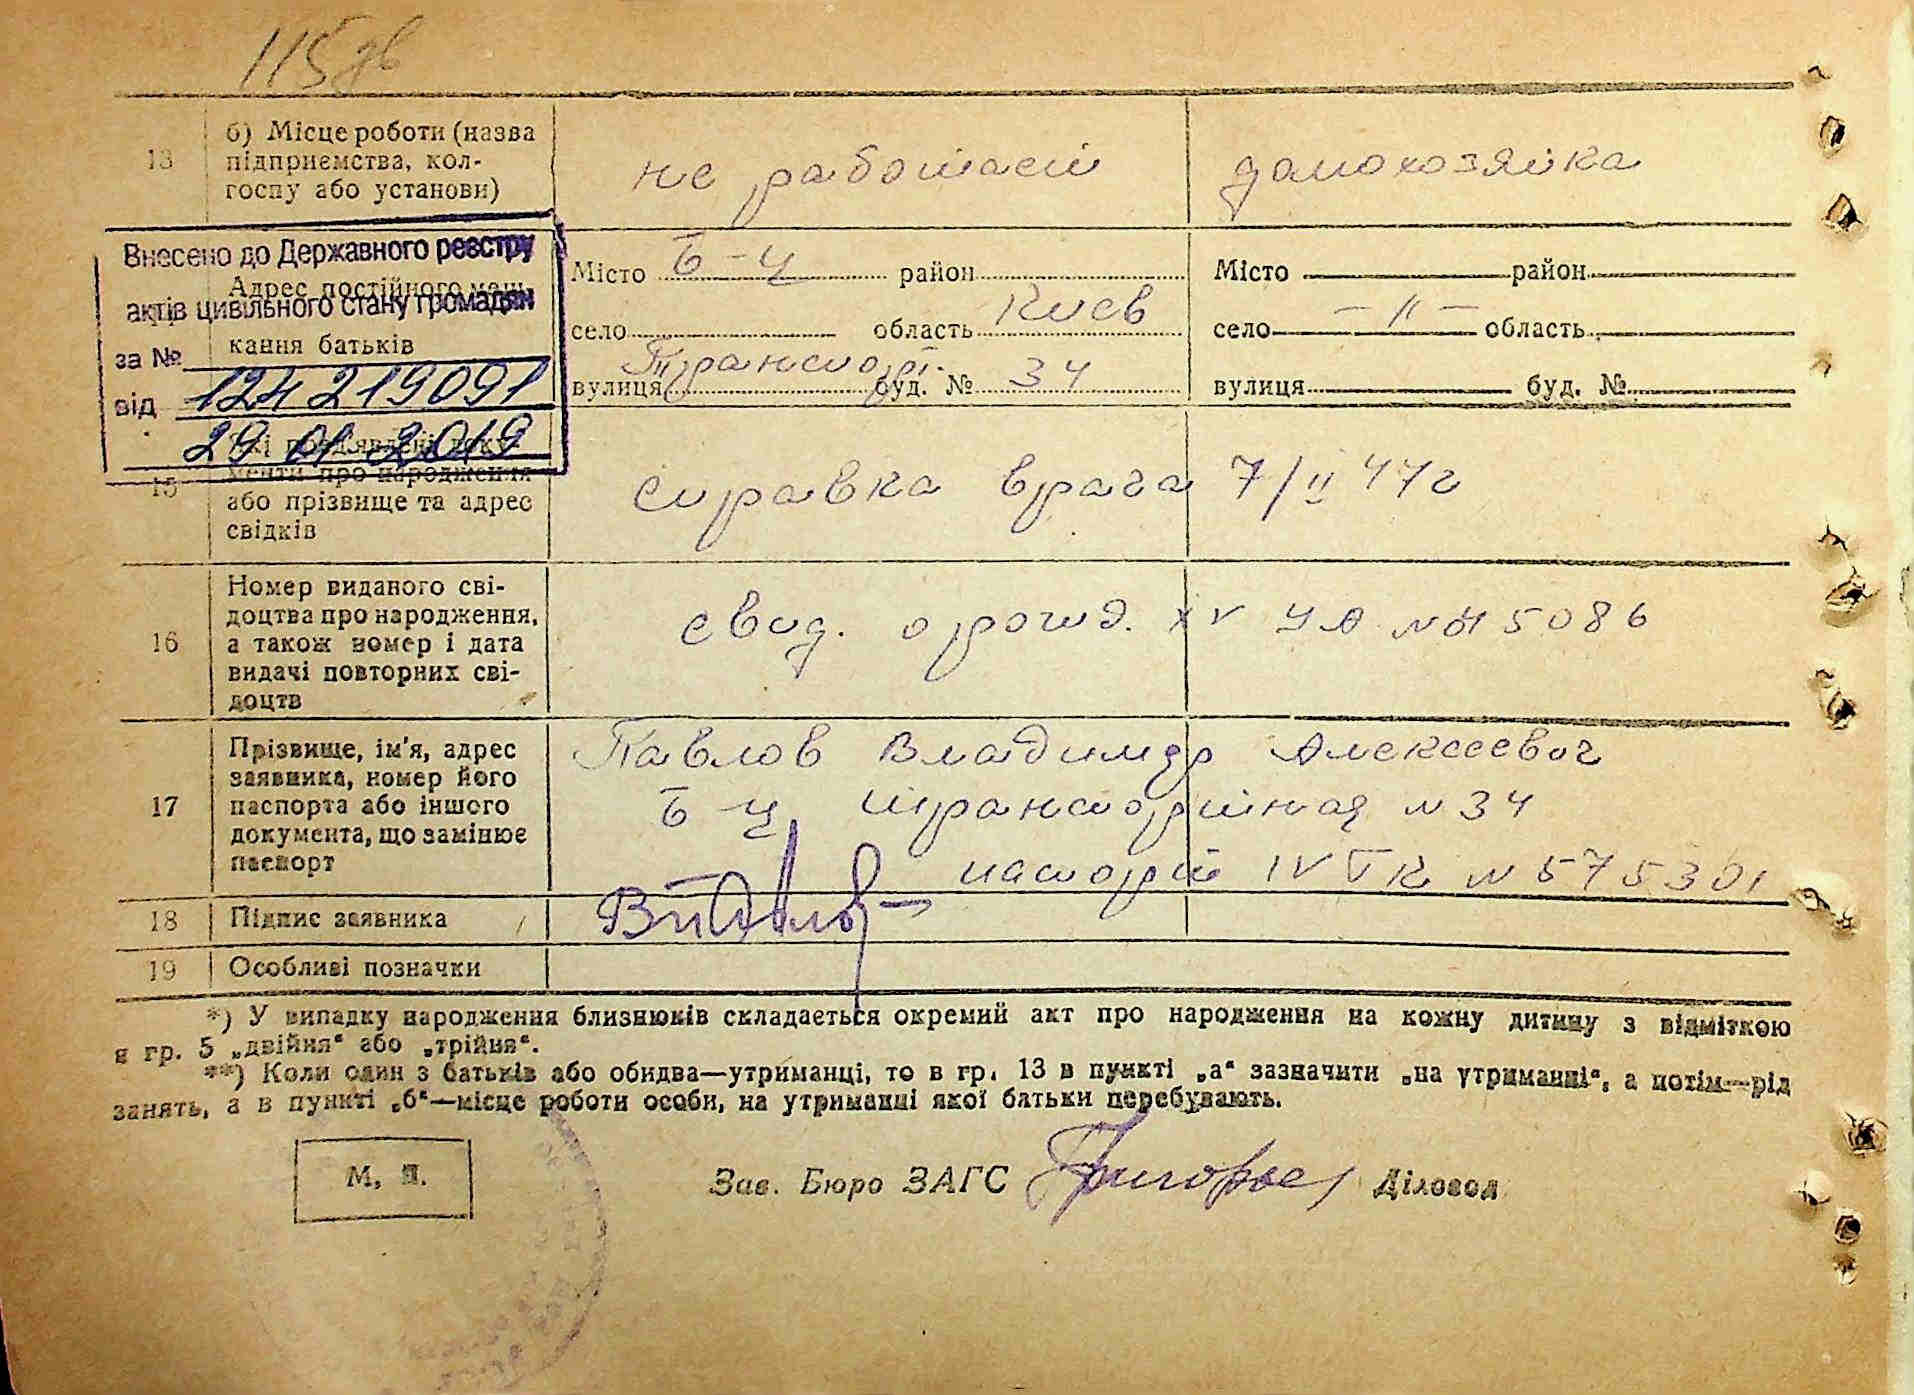 115
13 б) Місце роботи (назва підприємства, колгоспу або установи) не работает домохозяйка
б) Місце роботи (назва
підприємства, кол-
госпу або установи)
Внесено до Державного реєстру
актів цивільного стану громадян
за №
124219091
від
29 01 2019
Адрес постійного меш-
кання батьків
Місто Б-Ц район
село область Киев
вулиця Транспорт. буд. № 34
Місто район
село -"- область
вулиця буд. №
15
Які пред'явлені доку-
менти про народження
або прізвище та адрес
свідків
справка врача 7/II 47г
16
Номер виданого сві-
доцтва про народження,
а також номер і дата
видачі повторних сві-
доцтв
свид. о рожд. XV УА № 415086
17
Прізвище, ім'я, адрес
заявника, номер його
паспорта або іншого
документа, що замінює
паспорт
Павлов Владимир Алексеевич
Б-Ц Транспортная № 34
паспорт IV ТК № 575301
18 Підпис заявника
19 Особливі позначки
*) У випадку народження близнюків складається окремий акт про народження на кожну дитину з відміткою
в гр. 5 „двійня“ або „трійня“.
**) Коли один з батьків або обидва—утриманці, то в гр. 13 в пункті „а“ зазначити „на утриманні“, а потім—рід
занять, а в пункті „б“—місце роботи особи, на утриманні якої батьки перебувають.
М. П.
Зав. Бюро ЗАГС Діловод